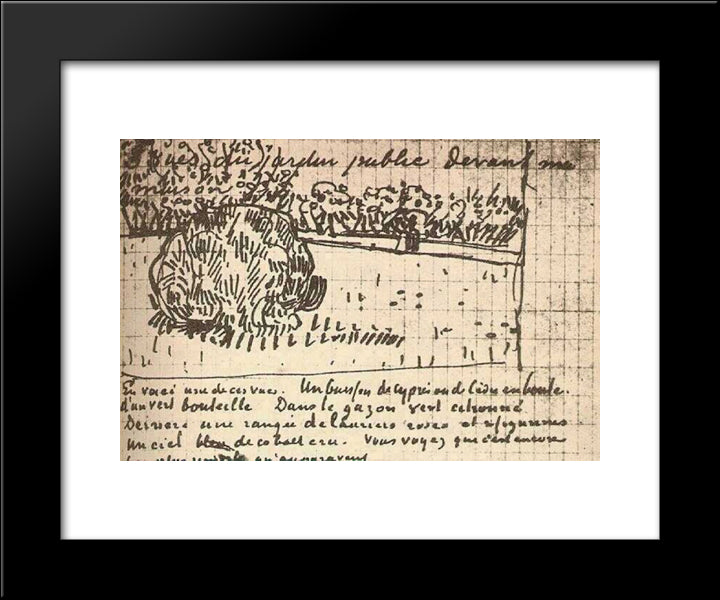 vues du jardin public devant ma
maison
En voici une de ces vues. Un buisson de cyprès en boule.
d'un vert bouteille Dans le gazon vert citronné
Derrière une rangée de lauriers roses et
un ciel bleu de cobalt cru. Vous voyez que c'est encore